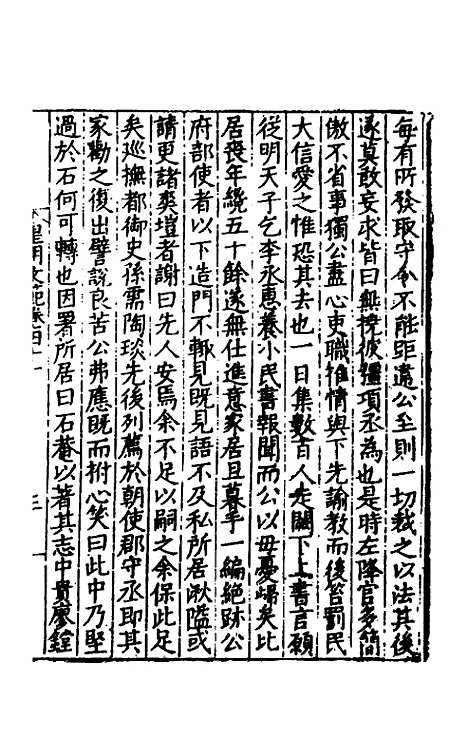 每有所發取守令不能距違公至則一切裁之以法其後
遂莫敢妄求皆曰無攪彼彊項丞為也是時左降官多簡
傲不省事獨公盡心吏職推情與下先諭教而後笞罰民
大信愛之惟恐其去也一日集數百人走闕下上書言願
從明天子乞李永惠養小民書報聞而公以毋憂歸矣比
居喪年纔五十餘遂無仕進意家居旦暮手一編絕跡公
府部使者以下造門不輙見既見語不及私所居湫隘或
請更諸爽塏者謝曰先人安焉余不足以嗣之余保此足
矣巡撫都御史孫需陶琰先後列薦於朝使郡守丞即其
家勸之復出譬說良苦公弗應既而拊心笑曰此中乃堅
過於石何可轉也因署所居曰石菴以著其志中貴廖鏜
皇明文範卷四十一
三